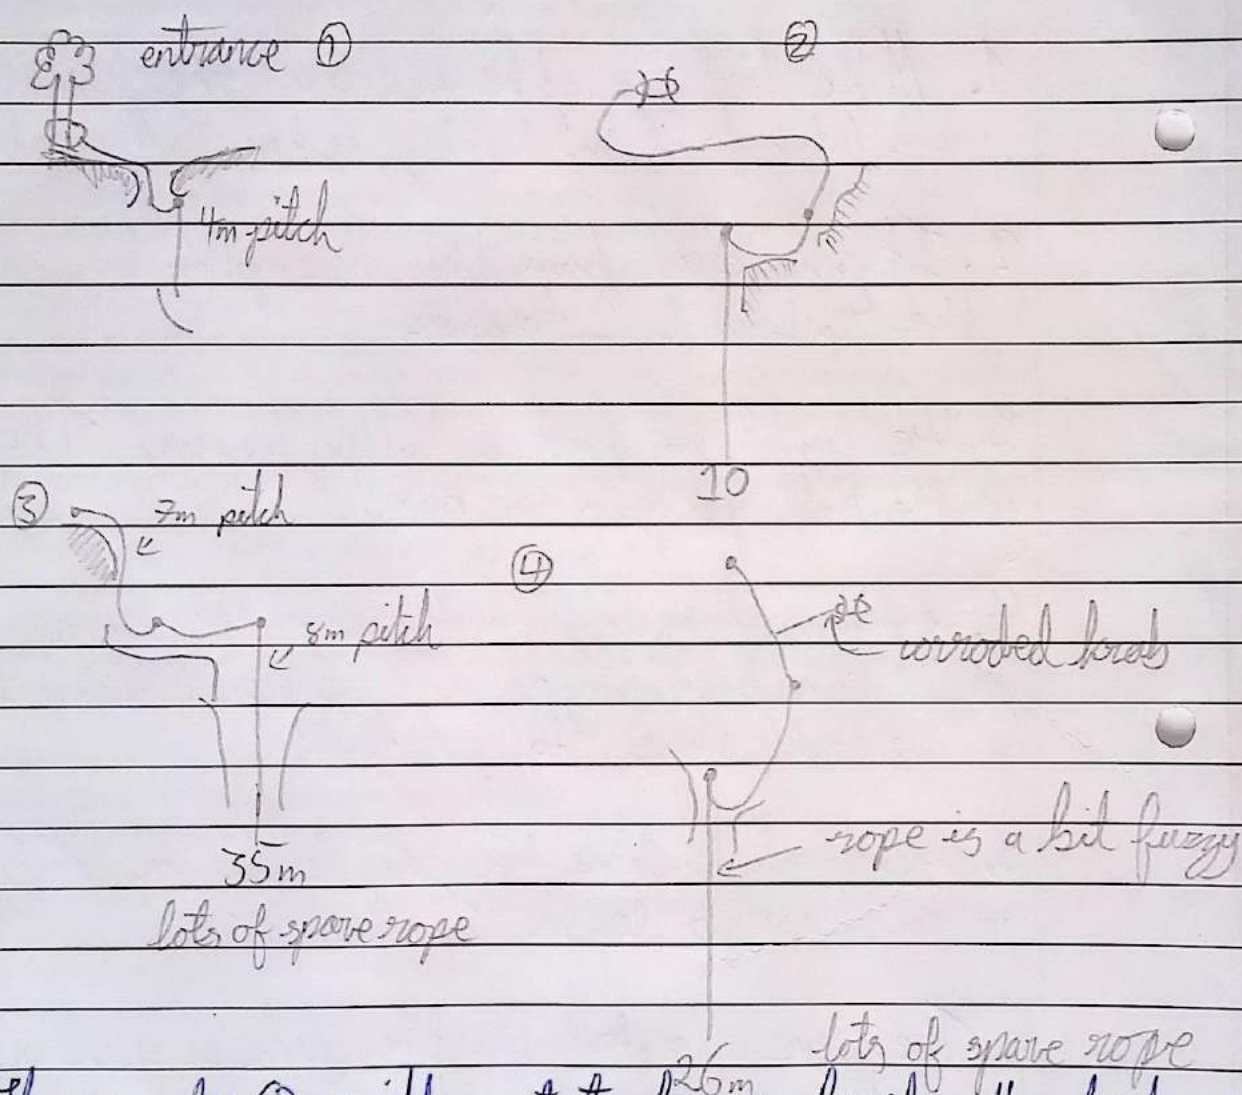 entrance ①
②
4m pitch
10
③ 7m pitch
8m pitch
35m
lots of spare rope
④
corroded
rope is a bit fuzzy
26m
lots of spare rope